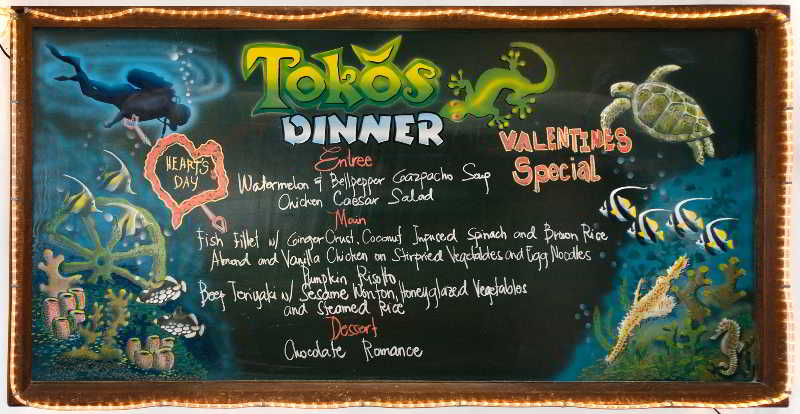 Tokos
DINNER
HEARTS
DAY
VALENTINES
Special
Entree
Watermelon & Bellpepper Gazpacho Soup
Chicken Caesar Salad
Main
Fish Fillet w/ Ginger Crust, Coconut Infuced Spinach and Brown Rice
Almond and Vanilla Chicken on Stirpried Vegetables and Egg Noodles
Pumpkin Risotto
Beef Teriyaki w/ Sesame Wonton, Honeyglazed Vegetables
and Steamed Rice
Dessert
Chocolate Romance